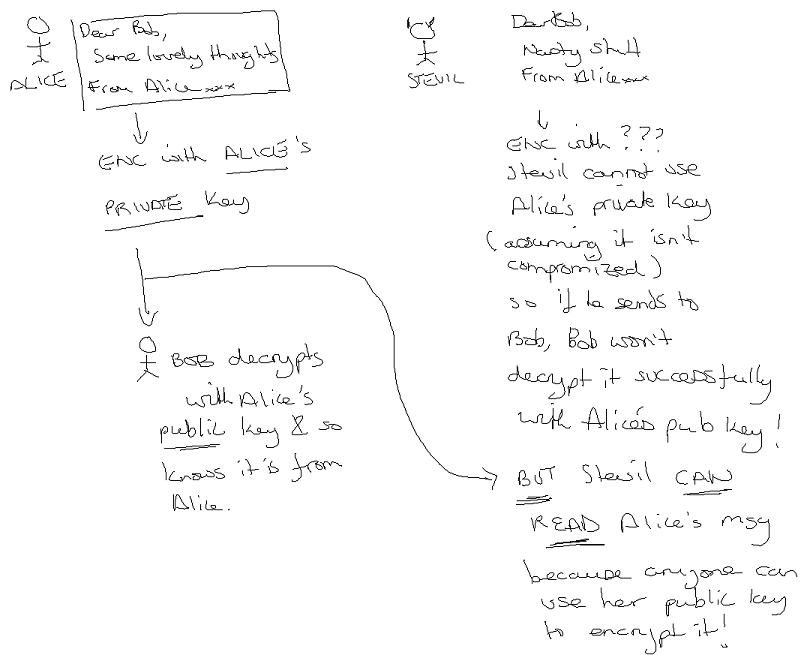 ALICE
Dear Bob,
Some lovely thoughts
From Alice xxx
ENC with ALICE's
PRIVATE Key
BOB decrypts
with Alice's
public key & so
knows it is from
Alice.
STEVIL
Dear Bob,
Nasty stuff
From Alice xxx
ENC with ???
Stevil cannot use
Alice's private key
(assuming it isn't
compromized)
so if he sends to
Bob, Bob won't
decrypt it successfully
with Alice's pub key!
BUT Stevil CAN
READ Alice's msg
because anyone can
use her public key
to encrypt it!